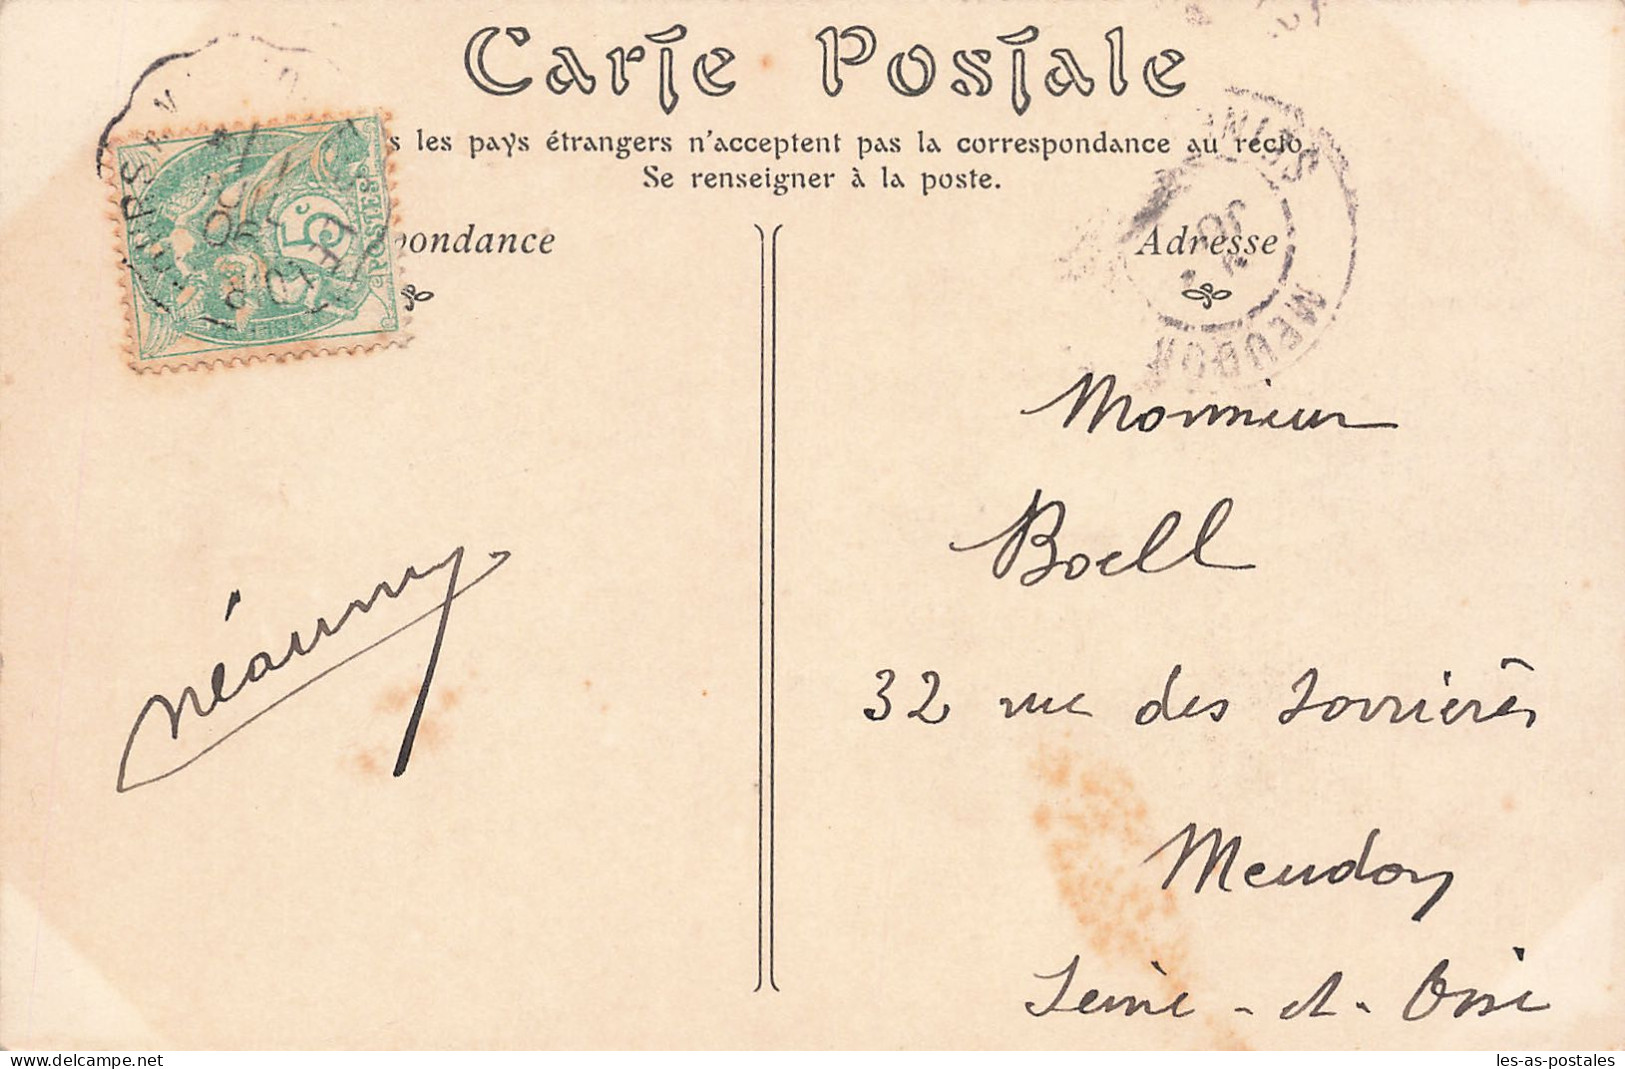 Carte Postale
s les pays étrangers n'acceptent pas la correspondance au recto
Se renseigner à la poste.
pondance
Adresse
5c
POSTES
MEUDON
Monsieur
Boell
32 rue des Sorrières
Meudon
Seine-et-Oise
néaumy
delcampe.net
les-as-postales